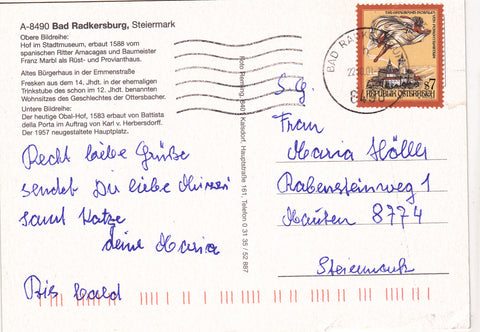 A-8490 Bad Radkersburg, Steiermark
Obere Bildreihe:
Hof im Stadtmuseum, erbaut 1588 vom
spanischen Ritter Amacagas und Baumeister
Franz Marbl als Rüst- und Provianthaus.
Altes Bürgerhaus in der Emmenstraße
Fresken aus dem 14. Jhdt. in der ehemaligen
Trinkstube des schon im 12. Jhdt. benannten
Wohnsitzes des Geschlechtes der Ottersbacher.
Untere Bildreihe:
Der heutige Obal-Hof, 1583 erbaut von Battista
della Porta im Auftrag von Karl v. Herbersdorff.
Der 1957 neugestaltete Hauptplatz.
Recht liebe Grüße
sendet Dir liebe
samt Katze
deine Maria
Bis bald
8401 Kalsdorf, Hauptstraße 161, Telefon 0 31 35 / 52 867
S 7
REPUBLIK ÖSTERREICH
BAD
8490
S.g.
Frau
Maria Höller
Rabensteinweg 1
Mautern 8774
Steiermark